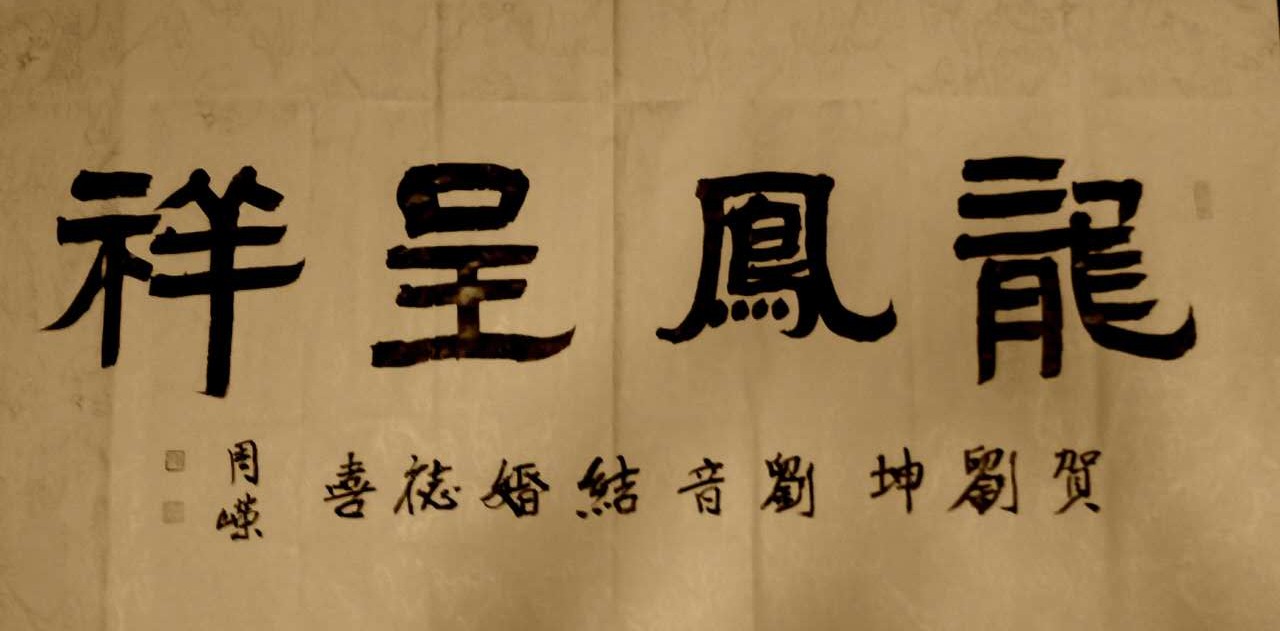 龍鳳呈祥
賀劉坤劉音結婚誌喜
周嶸